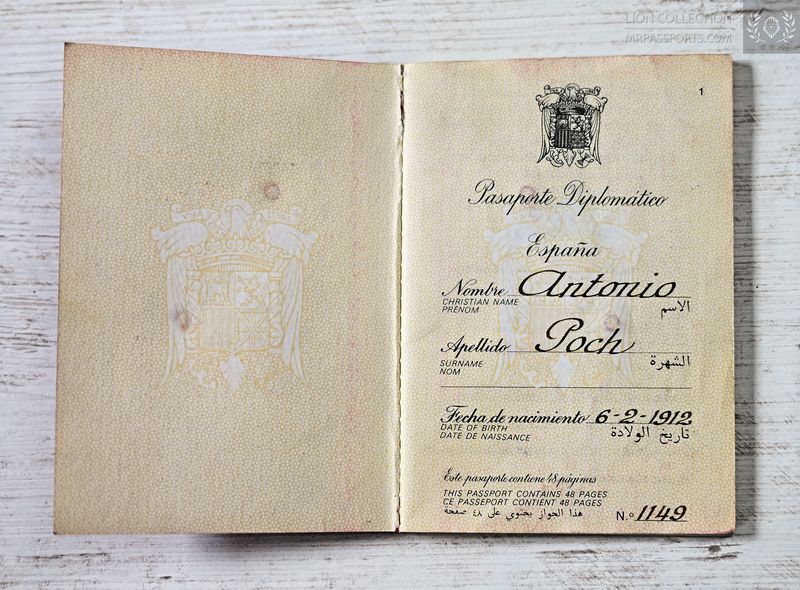 LION COLLECTION
MRPASSPORTS.COM
1
Pasaporte Diplomático
España
Nombre Antonio
CHRISTIAN NAME
PRÉNOM
الاسم
Apellido Poch
SURNAME
NOM
الشهرة
Fecha de nacimiento 6-2-1912
DATE OF BIRTH
DATE DE NAISSANCE
تاريخ الولادة
Este pasaporte contiene 48 páginas
THIS PASSPORT CONTAINS 48 PAGES
CE PASSEPORT CONTIENT 48 PAGES
هذا الجواز يحتوي على ٤٨ صفحة
N.º 1149